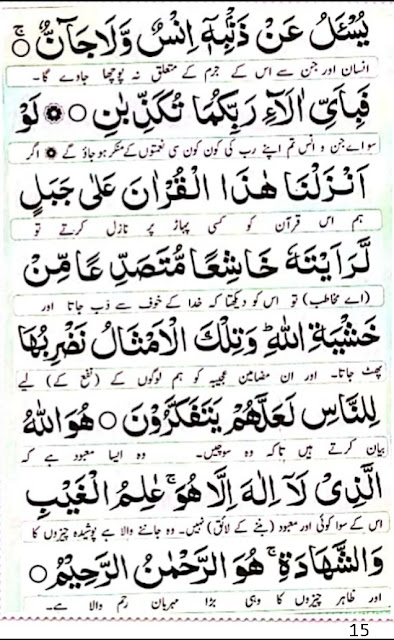 يُسْـَٔلُ عَنْ ذَنْۢبِهٖٓ اِنْسٌ وَّلَا جَآنٌّ ۚ
انسان اور جن سے اس کے جرم کے متعلق نہ پوچھا جاوے گا۔
فَبِاَيِّ اٰلَآءِ رَبِّكُمَا تُكَذِّبٰنِ ۝ لَوْ
سو اے جن و انس تم اپنے رب کی کون کون سی نعمتوں کے منکر ہو جاؤ گے ۝ اگر
اَنْزَلْنَا هٰذَا الْقُرْاٰنَ عَلٰى جَبَلٍ
ہم اس قرآن کو کسی پہاڑ پر نازل کرتے تو
لَّرَاَيْتَهٗ خَاشِعًا مُّتَصَدِّعًا مِّنْ
(اے مخاطب) تو اس کو دیکھتا کہ خدا کے خوف سے دب جاتا اور
خَشْيَةِ اللّٰهِ ؕ وَتِلْكَ الْاَمْثَالُ نَضْرِبُهَا
پھٹ جاتا۔ اور ان مضامین عجیبہ کو ہم لوگوں کے (نفع کے) لیے
لِلنَّاسِ لَعَلَّهُمْ يَتَفَكَّرُوْنَ ۝ هُوَ اللّٰهُ
بیان کرتے ہیں تاکہ وہ سوچیں۔ وہ ایسا معبود ہے کہ
الَّذِيْ لَآ اِلٰهَ اِلَّا هُوَ ۚ عٰلِمُ الْغَيْبِ
اس کے سوا کوئی اور معبود (بننے کے لائق) نہیں۔ وہ جاننے والا ہے پوشیدہ چیزوں کا
وَالشَّهَادَةِ ۚ هُوَ الرَّحْمٰنُ الرَّحِيْمُ ۝
اور ظاہر چیزوں کا وہی بڑا مہربان رحم والا ہے۔
15